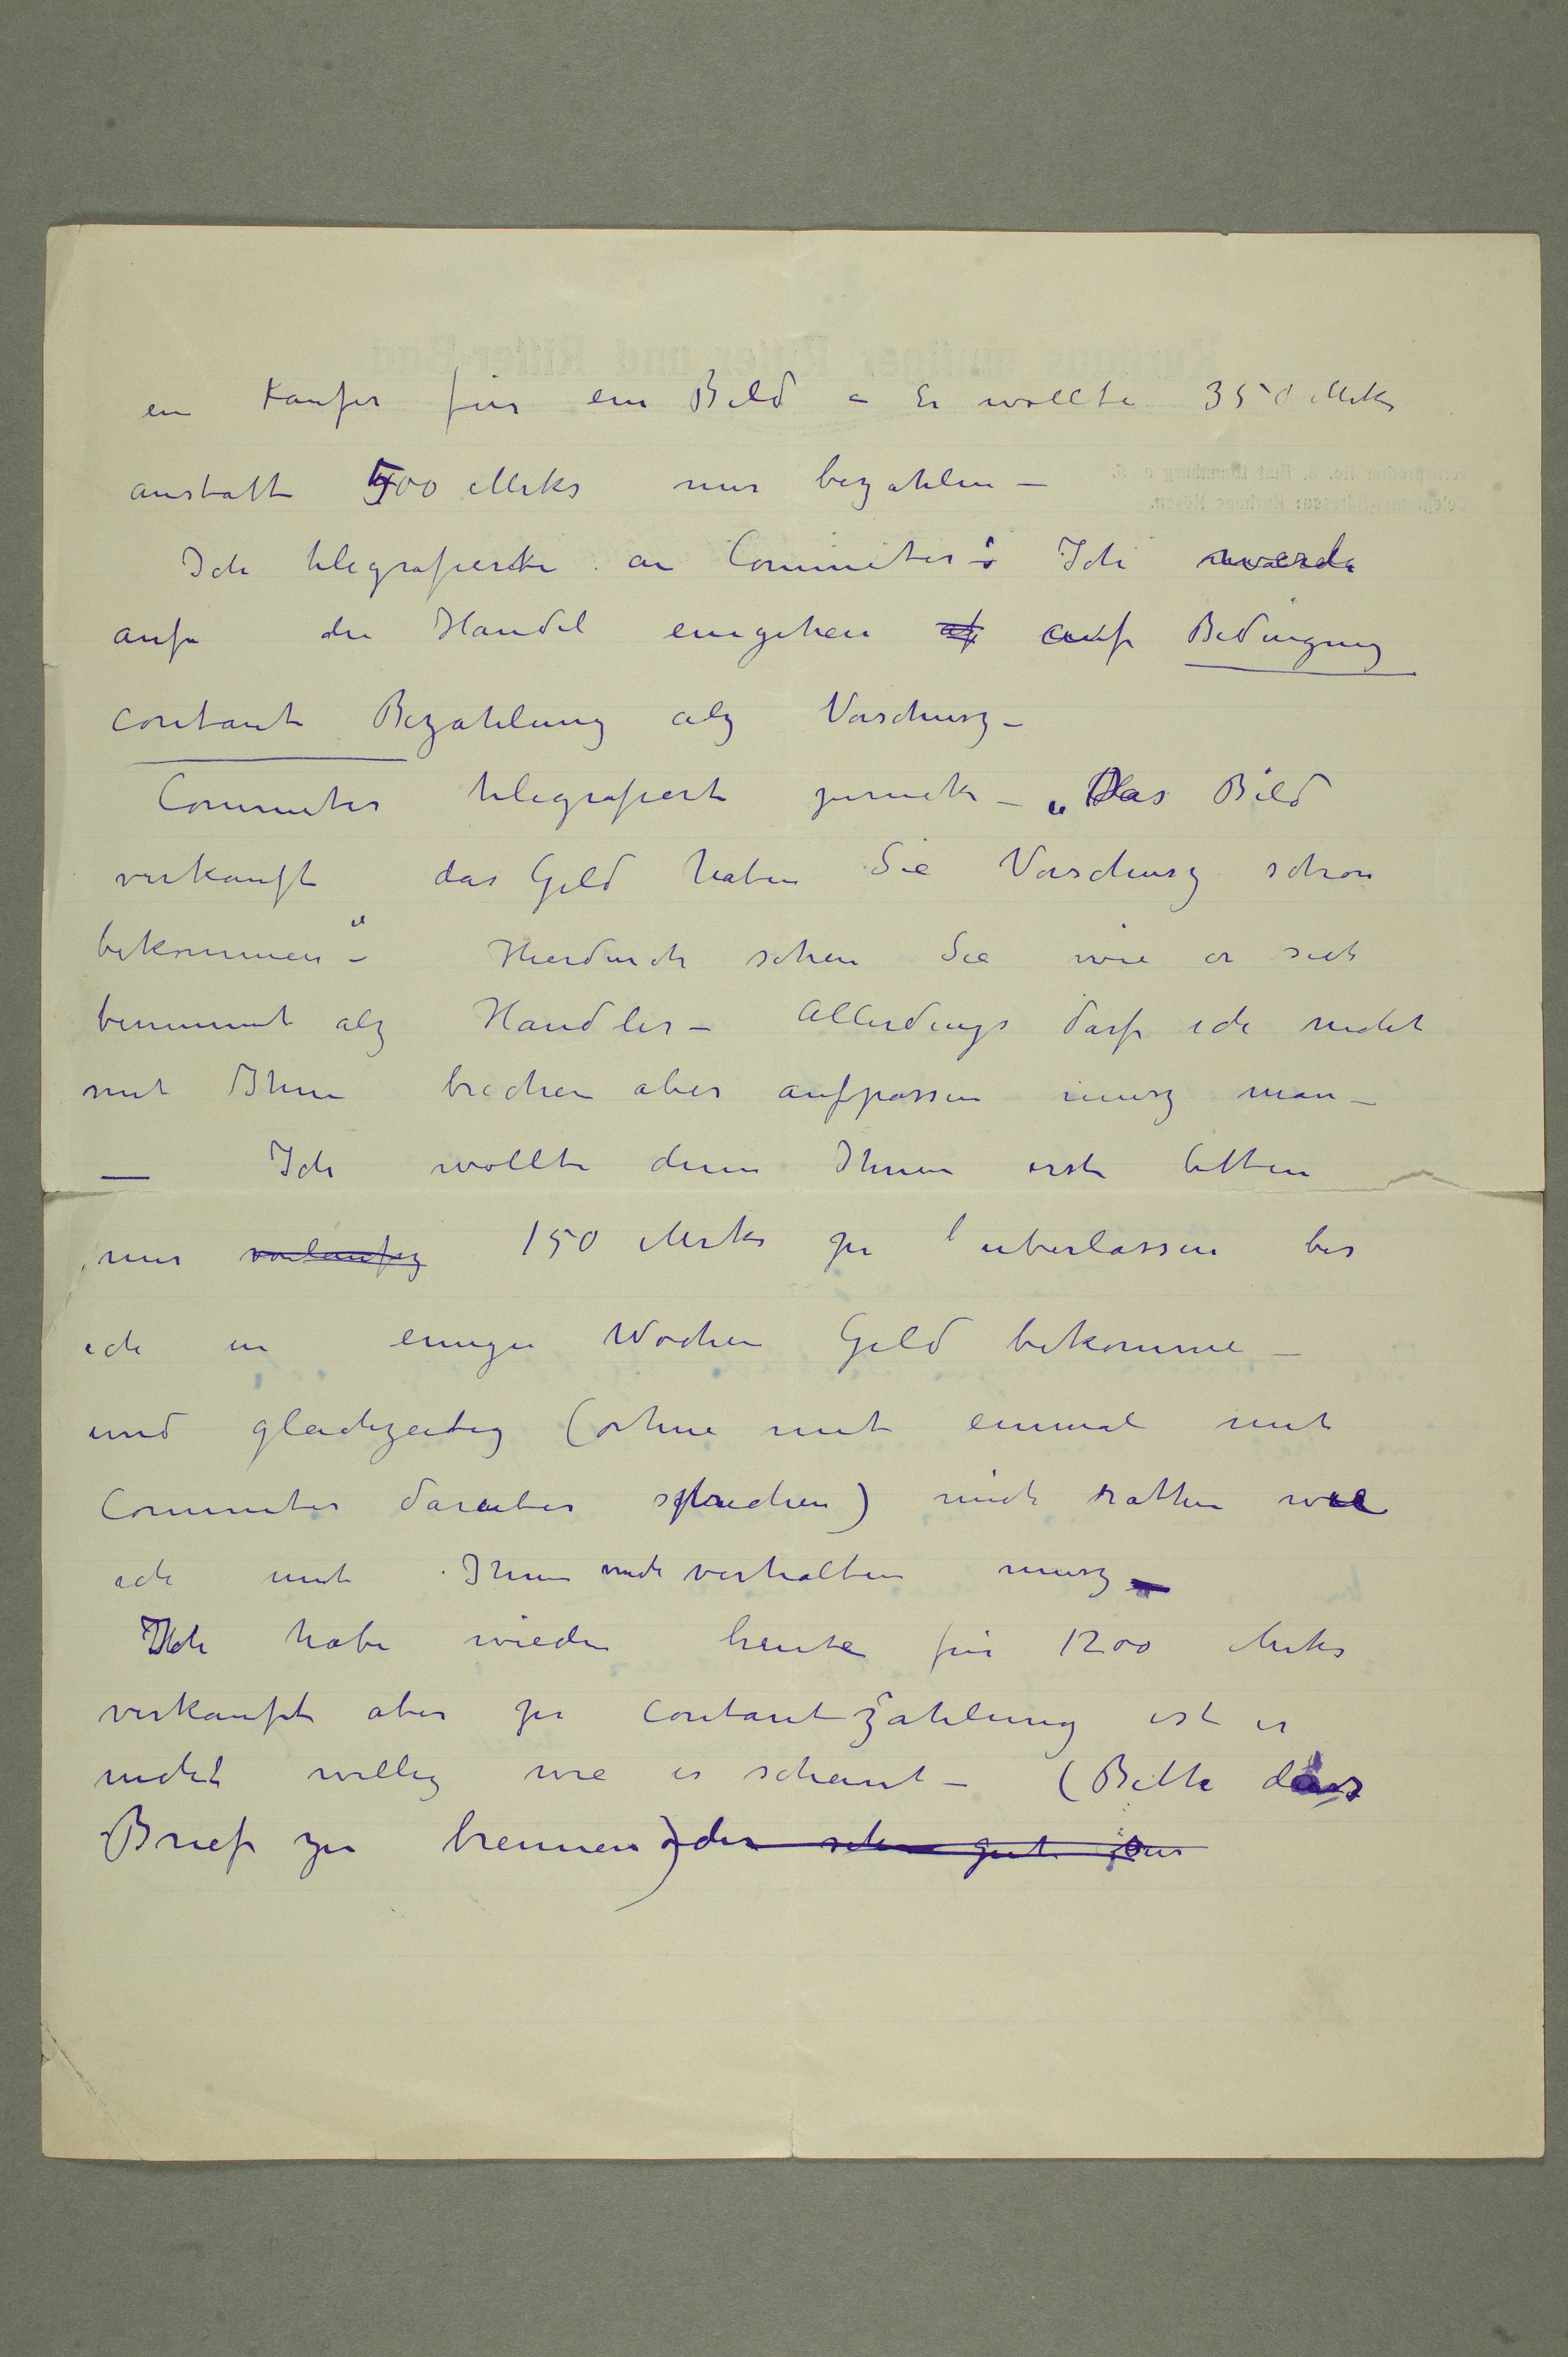 en Kaufer für ein Bild – Er wollte 350 Mks
anstatt 500 Mks nur bezahlen –
Ich telegrafierte an Commeter: Ich werde
auf die Handel eingehen auf Bedingung
contant Bezahlung alz Vorschusz –
Commeter telegrafiert zuruck – „Das Bild
verkauft das Geld haben Sie Vorschusz schon
bekommen" – Hierdurch sehen Sie wie er sich
benimmt alz Handler – Allerdings darf ich nicht
mit Ihm brechen aber aufpassen musz man –
— Ich wollte denn Ihnen erst bitten
mir vorlaufig 150 Mks zu uberlassen bis
ich in einigen Wochen Geld bekomme –
und gleichzeitig (ohne mit einmal mit
Commeter daruber sprechen) mich rathen wie
ich mit Ihm mich verhalten musz –
Ich habe wieder heute für 1200 Mks
verkauft aber zu contant Zahlung ist er
nicht willig wie es scheint – (Bitte das
Brief zu brennen)